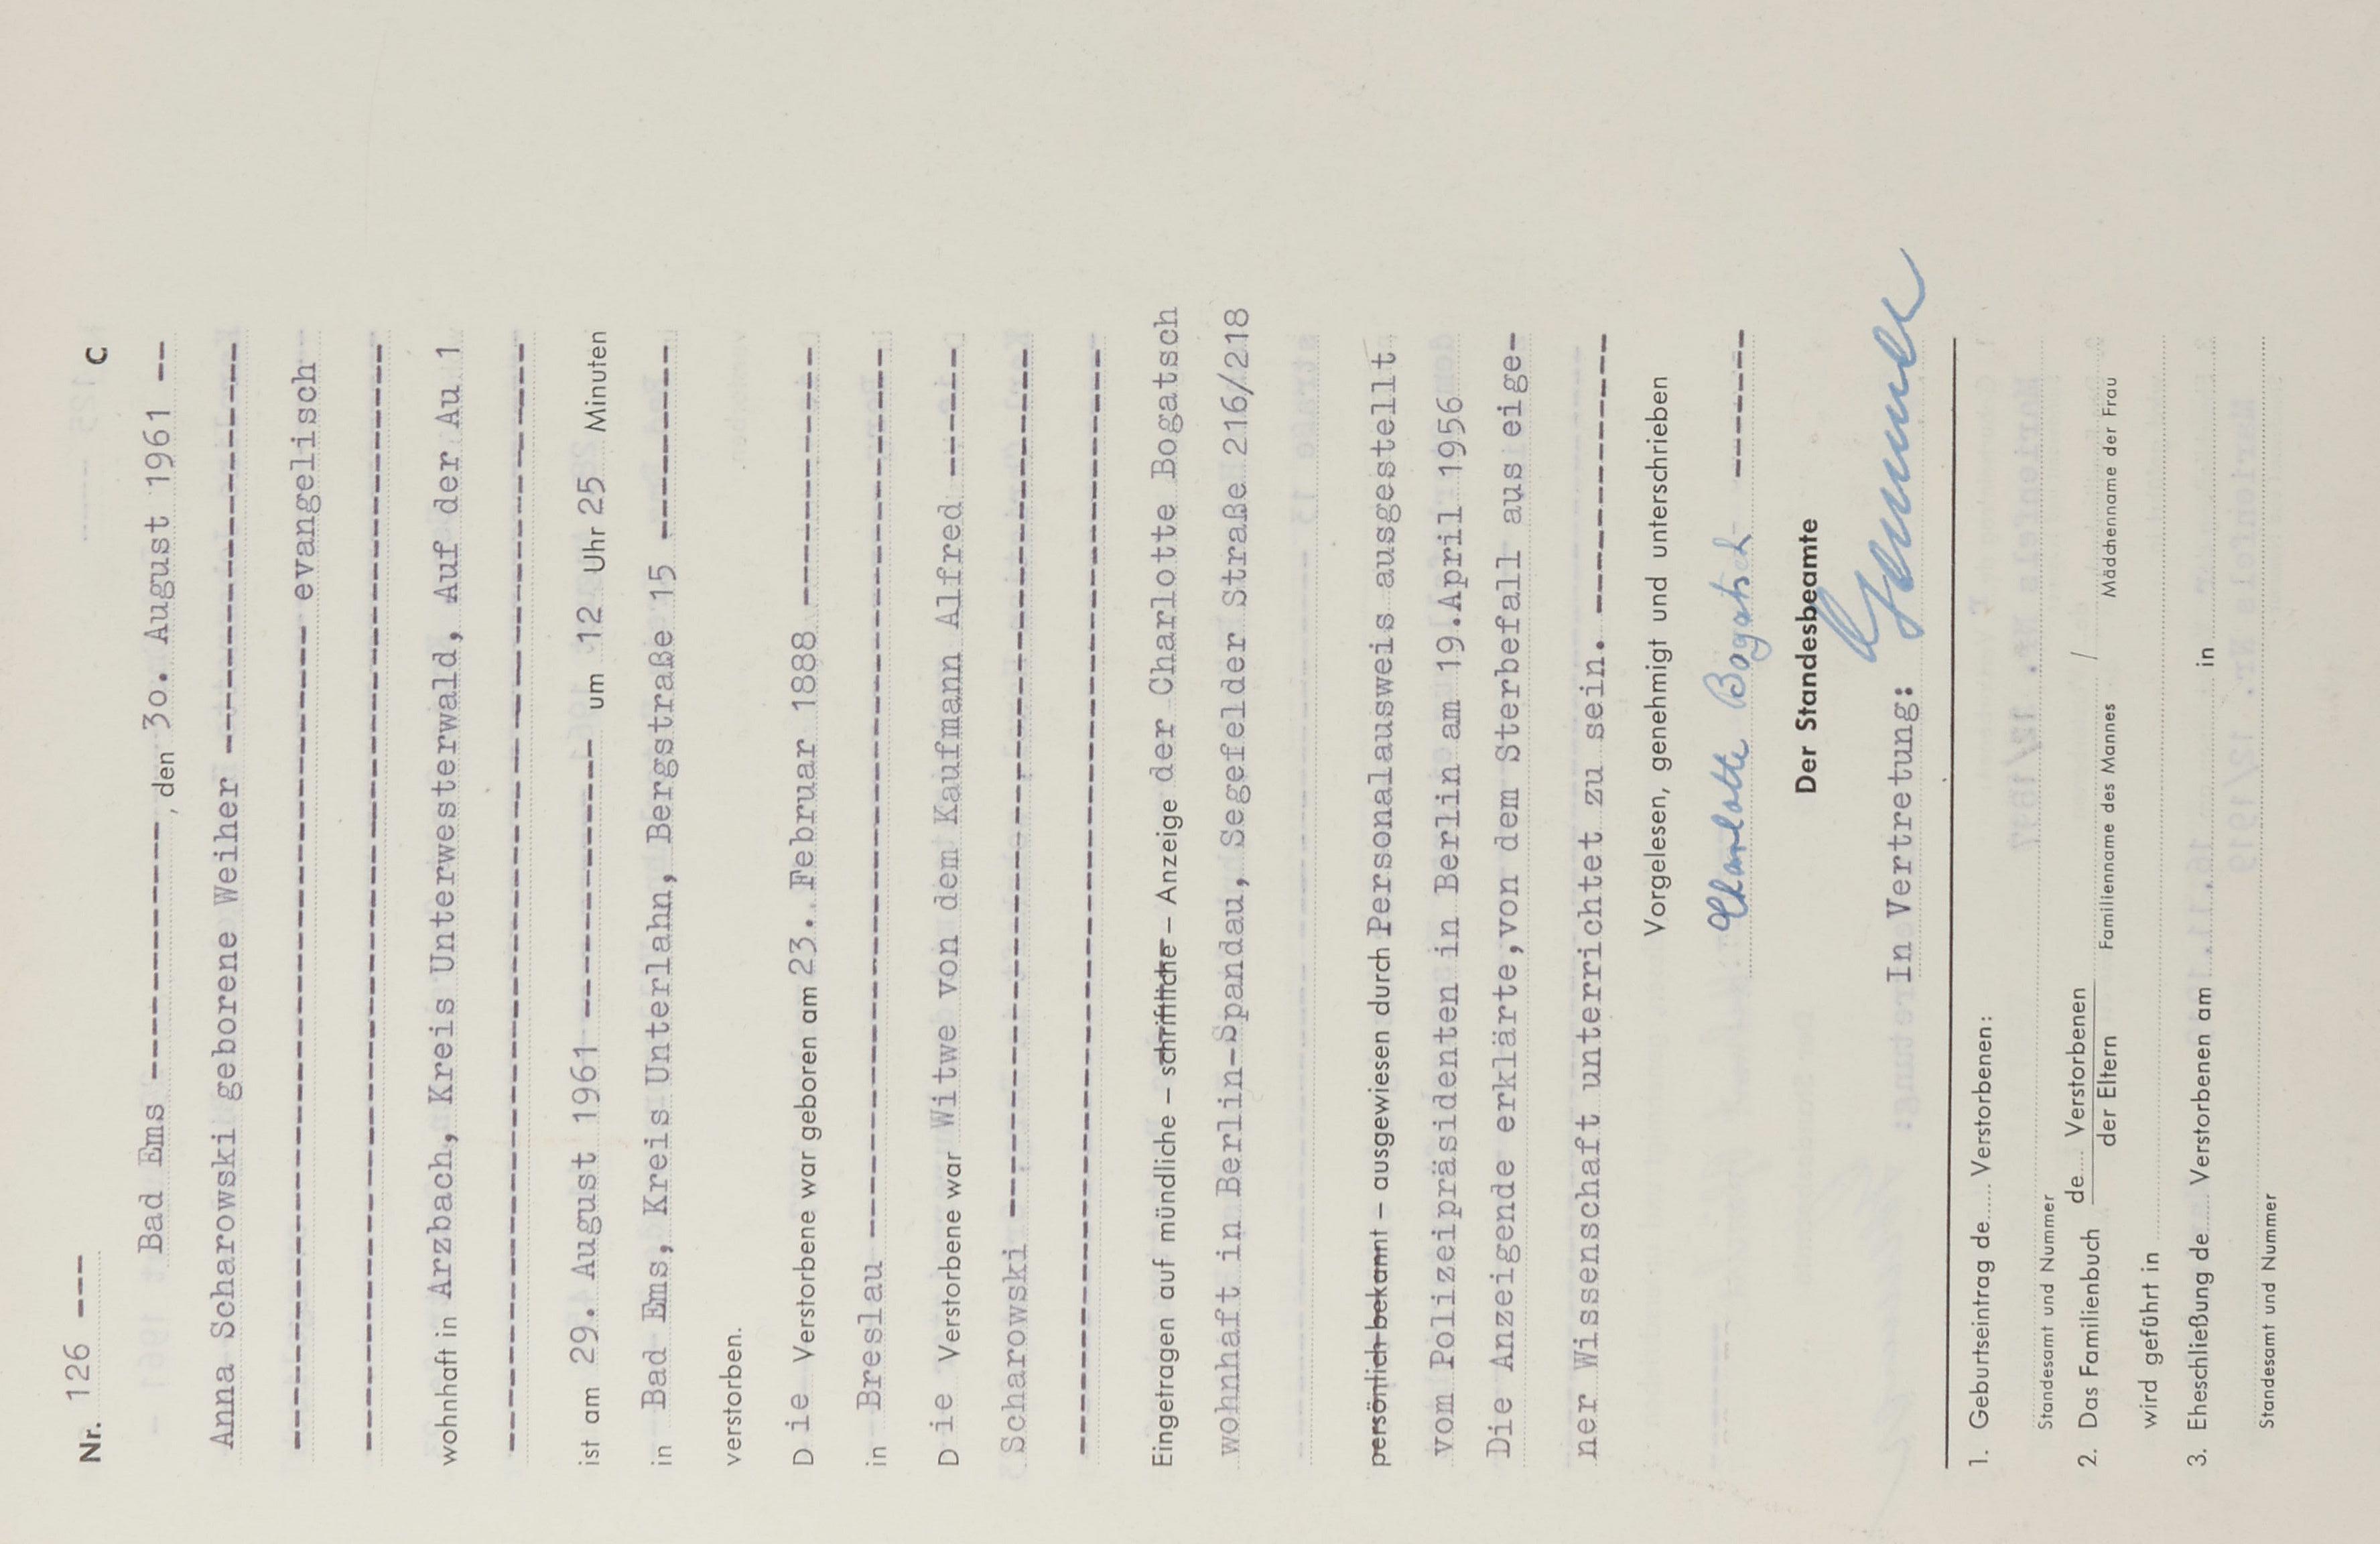 Nr. 126 --- C
Bad Ems ---------------, den 30. August 1961 --
Anna Scharowski geborene Weiher
evangelisch
wohnhaft in Arzbach, Kreis Unterwesterwald, Auf der Au 1
ist am 29. August 1961 --------------- um 12 Uhr 25 Minuten
in Bad Ems, Kreis Unterlahn, Bergstraße 15 ------------
verstorben.
Die Verstorbene war geboren am 23. Februar 1888
in Breslau
Die Verstorbene war Witwe von dem Kaufmann Alfred ------
Scharowski
Eingetragen auf mündliche – schriftliche – Anzeige der Charlotte Bogatsch
wohnhaft in Berlin-Spandau, Segefelder Straße 216/218
persönlich bekannt – ausgewiesen durch Personalausweis ausgestellt
vom Polizeipräsidenten in Berlin am 19.April 1956
Die Anzeigende erklärte,von dem Sterbefall aus eige-
ner Wissenschaft unterrichtet zu sein. ----------------
Vorgelesen, genehmigt und unterschrieben
Charlotte Bogatsch ---------
Der Standesbeamte
In Vertretung:
1. Geburtseintrag de..... Verstorbenen:
Standesamt und Nummer
2. Das Familienbuch de... Verstorbenen / der Eltern
Familienname des Mannes / Mädchenname der Frau
wird geführt in
3. Eheschließung de..... Verstorbenen am in
Standesamt und Nummer